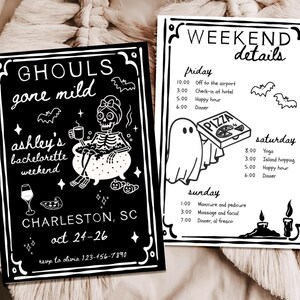 GHOULS
gone mild
ashley's
bachelorette
weekend
CHARLESTON, SC
oct 24-26
rsvp to olivia 123-456-7891
WEEKEND
details
friday
10:00 Off to the airport
3:00 Check-in at hotel
5:00 Happy hour
6:00 Dinner
PIZZA
saturday
8:00 Yoga
3:00 Island hopping
5:00 Happy hour
6:00 Dinner
sunday
1:00 Manicure and pedicure
3:00 Massage and facial
7:00 Dinner, al fresco